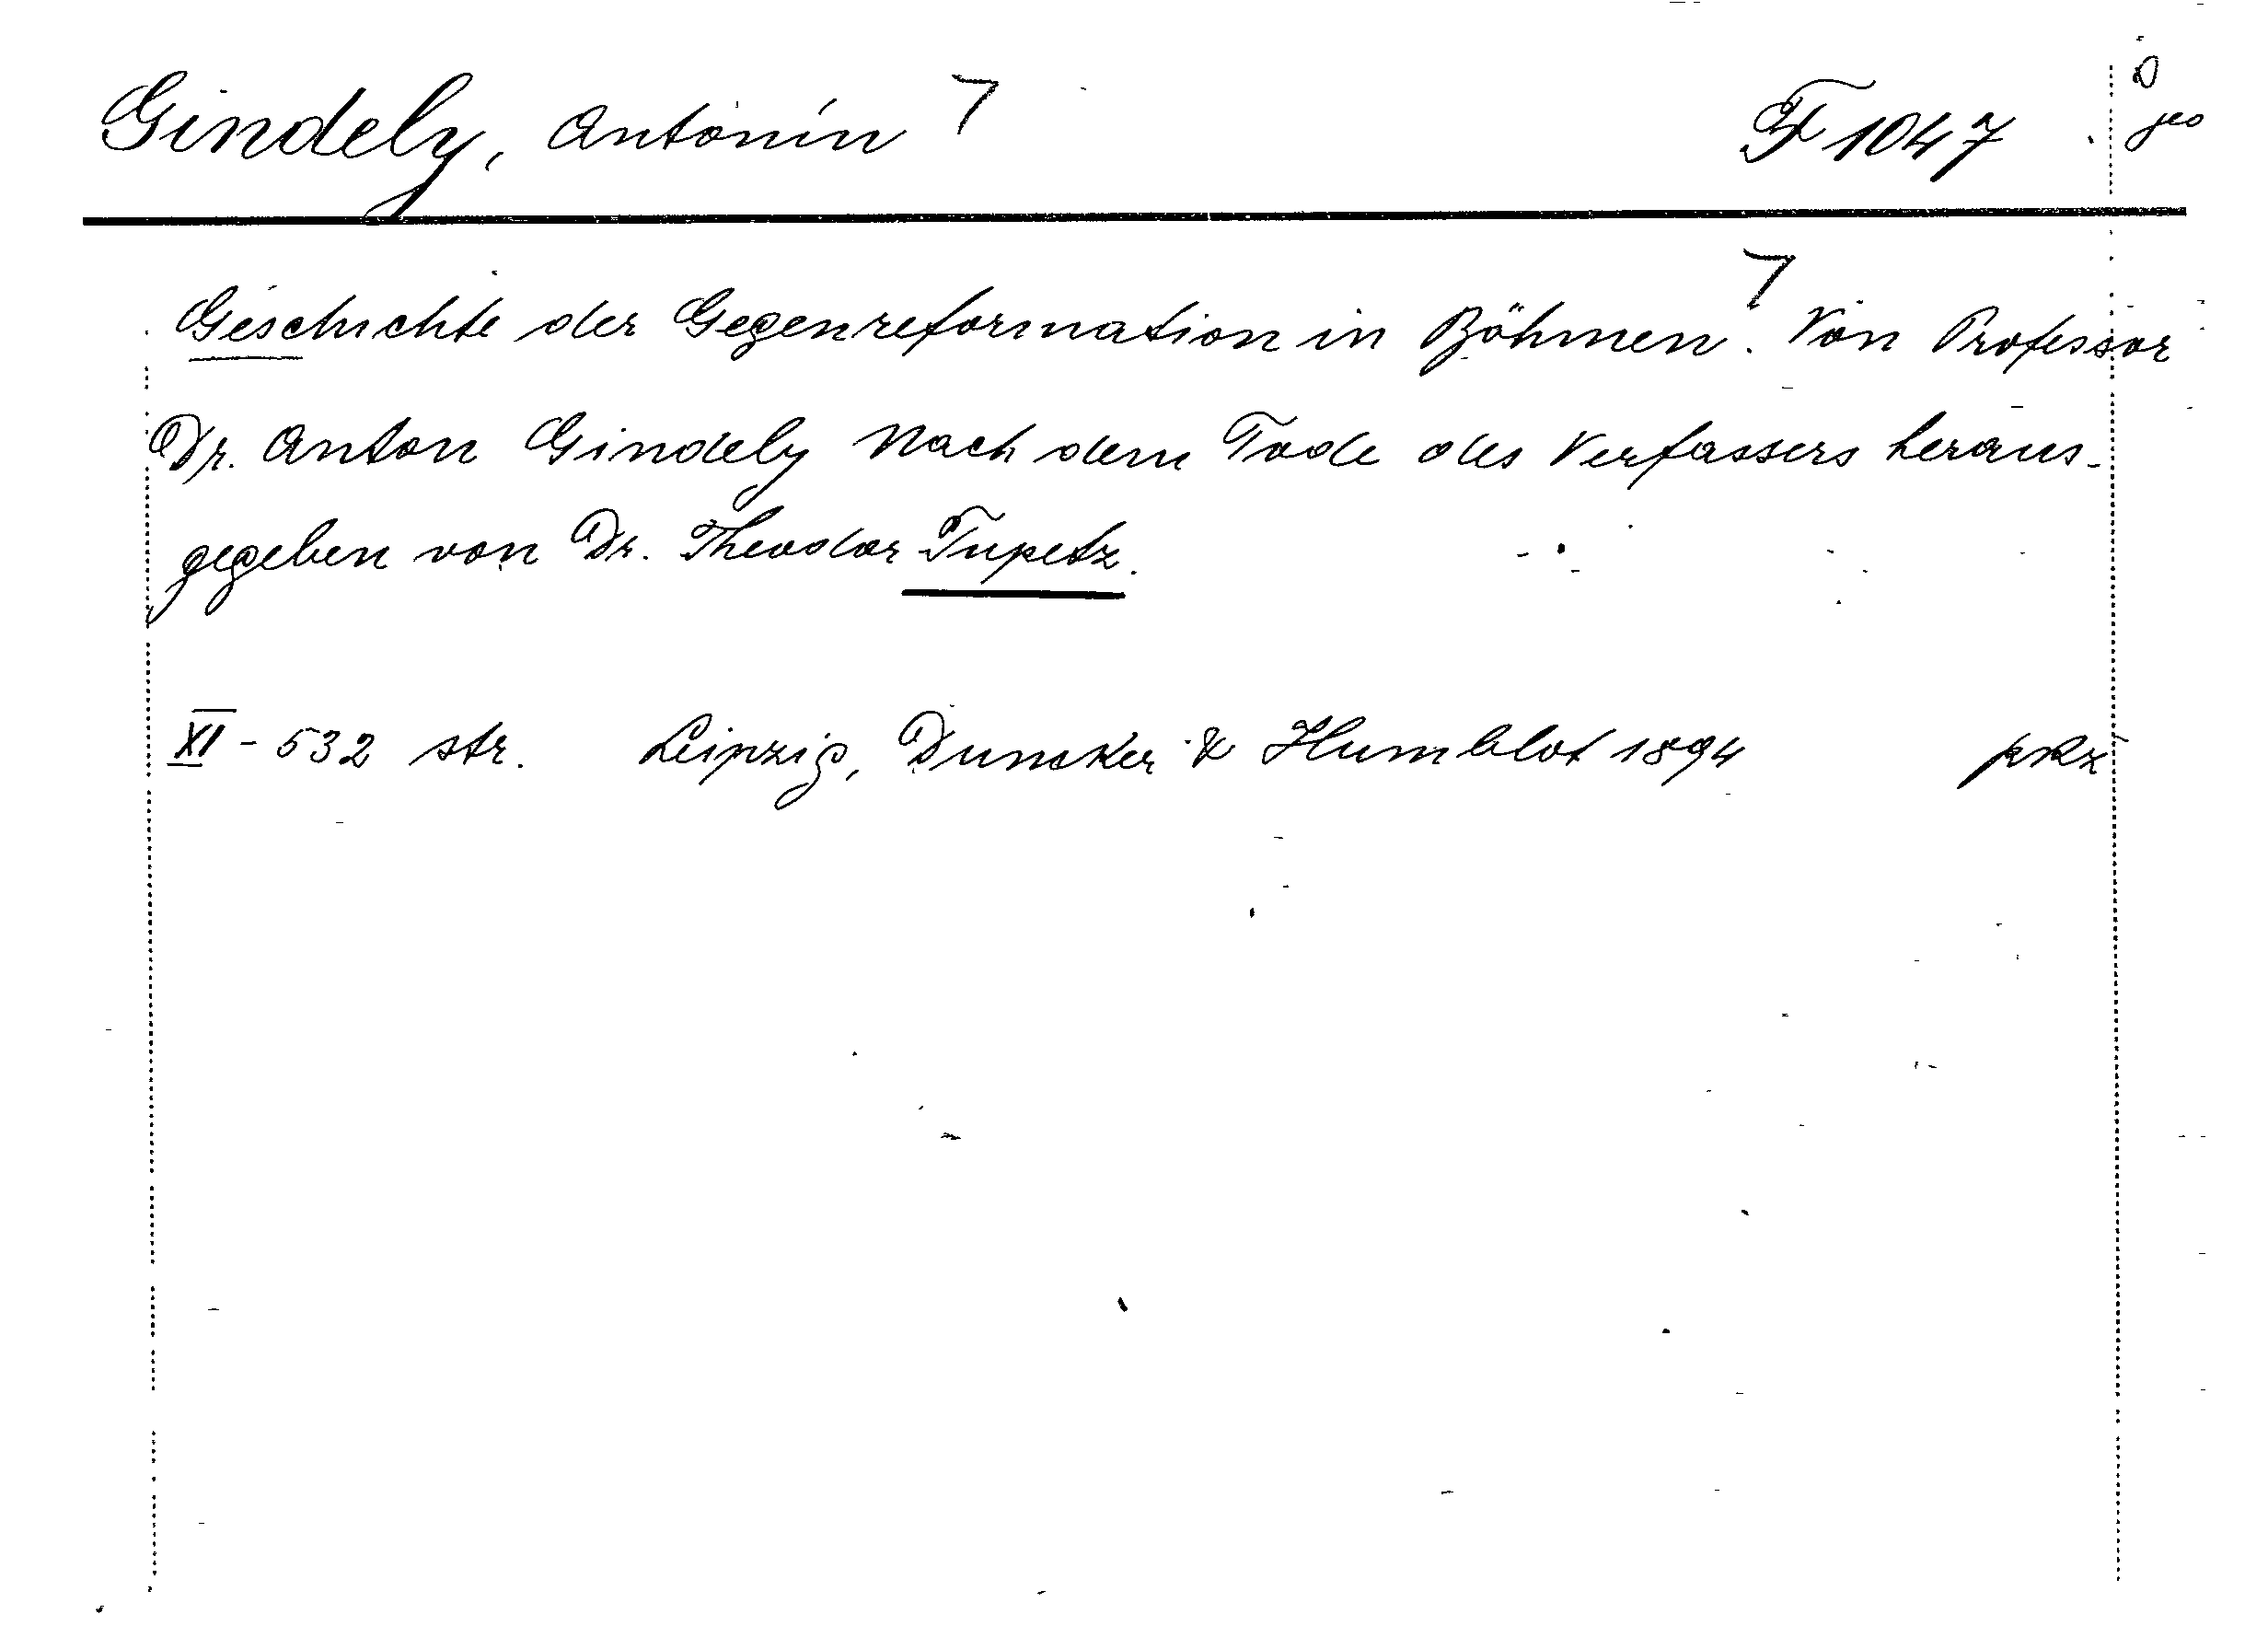 Gindely, Antonín F 1047
Geschichte der Gegenreformation in Böhmen. Von Professor
Dr. Anton Gindely Nach dem Tode des Verfassers heraus-
gegeben von Dr. Theodor Tupetz.
XI - 532 str. Leipzig, Duncker & Humblot 1894